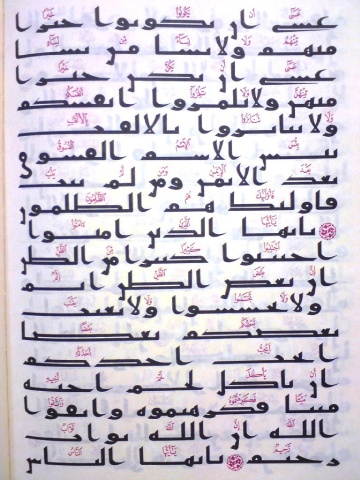 عسى ان يكونوا خيرا
منهم ولا نسا من نسا
عسى ان يكن خيرا
منهن ولا تلمزوا انفسكم
ولا تنابزوا بالالقب
بئس الاسم الفسوق
بعد الايمن ومن لم يتب
فاوليك هم الظلمون
يايها الذين امنوا
اجتنبوا كثيرا من الظن
ان بعض الظن اثم
ولا تجسسوا ولا يغتب
بعضكم بعضا
ايحب احدكم
ان ياكل لحم اخيه
ميتا فكرهتموه واتقوا
الله ان الله تواب
رحيم يايها الناس